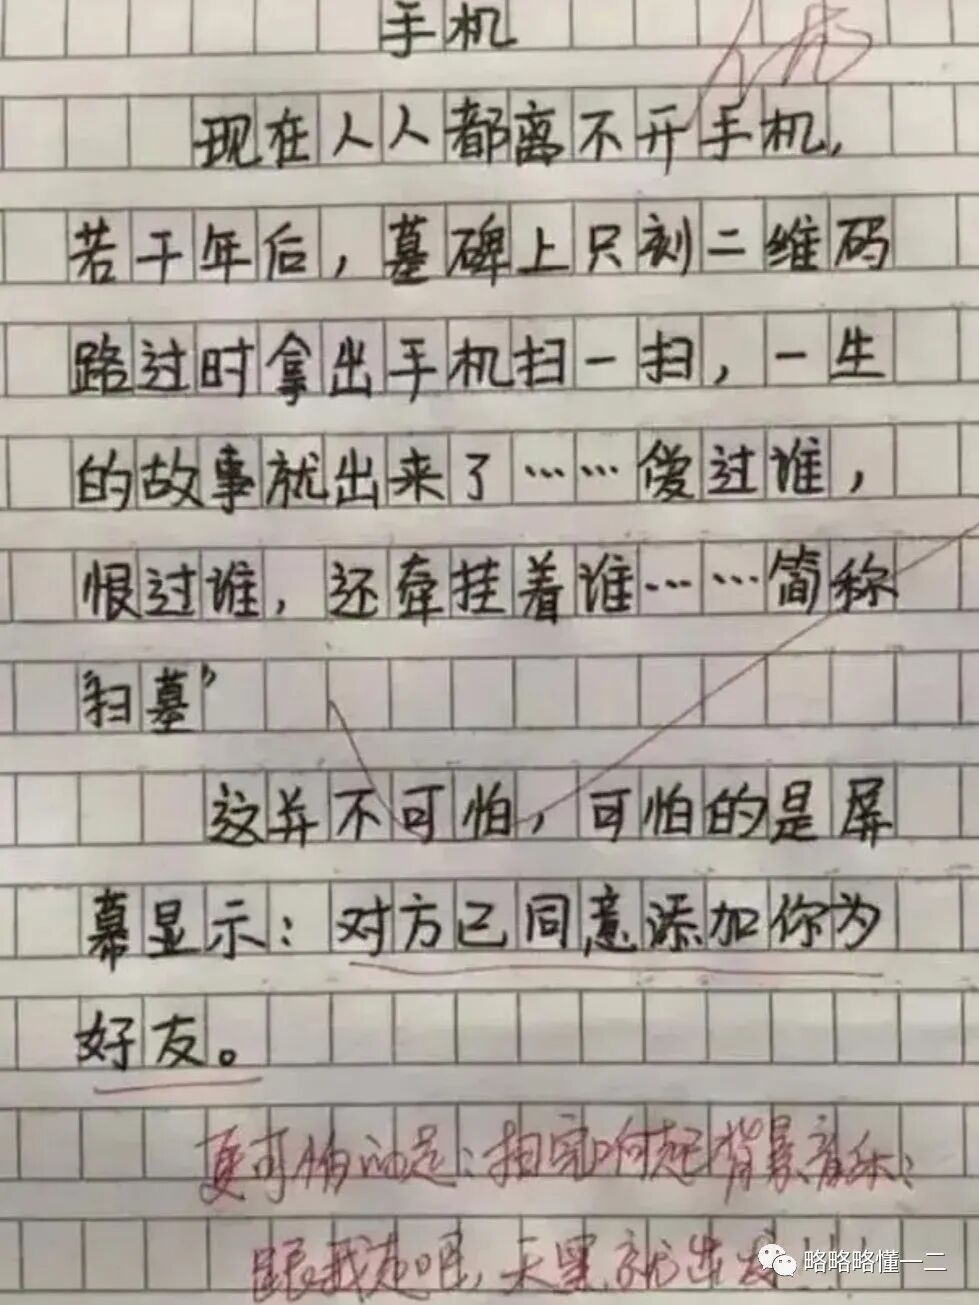 手机
优
现在人人都离不开手机,
若干年后,墓碑上只刻二维码
路过时拿出手机扫一扫,一生
的故事就出来了……爱过谁,
恨过谁,还牵挂着谁……简称
“扫墓”
这并不可怕,可怕的是屏
幕显示:对方已同意添加你为
好友。
更可怕的是:扫完响起背景音乐:
跟我走吧,天黑就出发!!!
略略略懂一二